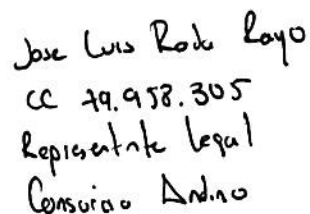 Jose Luis Roda Rayo
CC 79.958.305
Representnte legal
Consorcio Andino